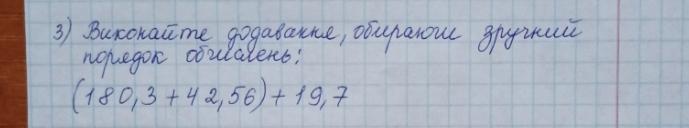 3) Виконайте додавання, обираючи зручний
порядок обчислень:
(180,3+42,56)+19,7